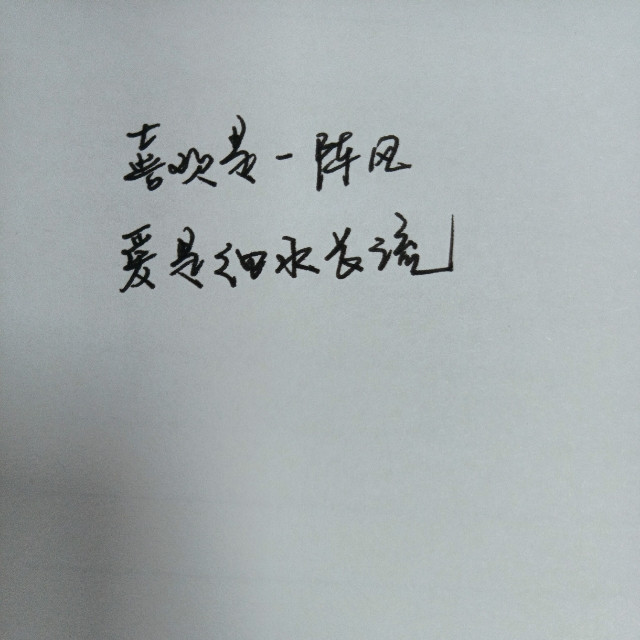 喜欢是一阵风
爱是细水长流